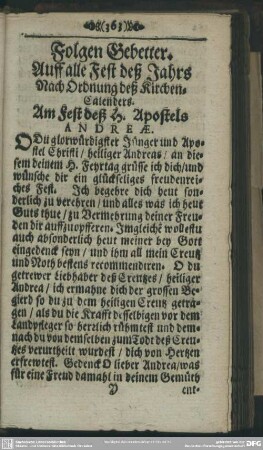 (363)
Folgen Gebetter.
Auff alle Fest deß Jahrs
Nach Ordnung deß Kirchen-
Calenders.
Am Fest deß H. Apostels
ANDREÆ.
O Du glorwürdigster Jünger und Apo-
stel Christi / heiliger Andreas / an die-
sem deinem H. Feyrtag grüsse ich dich / und
wünsche dir ein glückseliges freudenrei-
ches Fest. Ich begehre dich heut son-
derlich zu verehren / und alles was ich heut
Guts thue / zu Vermehrung deiner Freu-
den dir auffzuopfferen. Imgleichẽ wollestu
auch absonderlich heut meiner bey Gott
eingedenck seyn / und ihm all mein Creutz
und Noth bestens recommendiren. O du
getrewer Liebhaber des Creutzes / heiliger
Andrea / ich ermahne dich der grossen Be-
gierd so du zu dem heiligen Creutz getra-
gen / als du die Krafft desselbigen vor dem
Landpfleger so herrlich rühmtest und dem-
nach du von demselben zum Todt deß Creu-
tzes verurtheilt wurdest / dich von Hertzen
erfrewtest. Gedenck O lieber Andrea / was
für eine Freud damahl in deinem Gemüth
ent-